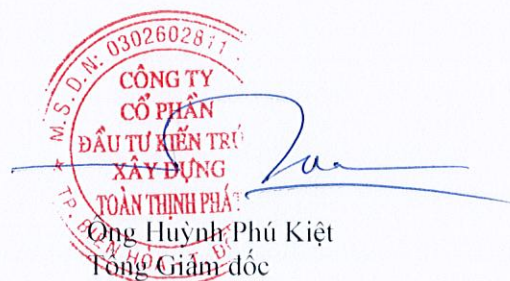 M.S.D.N: 0302602811
CÔNG TY
CỔ PHẦN
ĐẦU TƯ KIẾN TRÚ
XÂY DỰNG
TOÀN THỊNH PHÁT
TP. BIÊN HÒA
Ông Huỳnh Phú Kiệt
Tổng Giám đốc